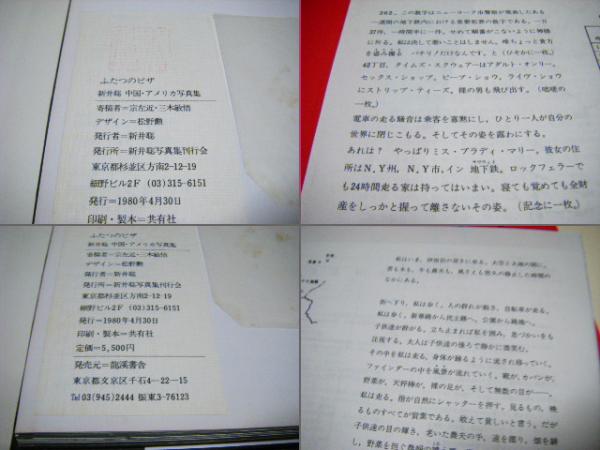 ふたつのビザ
新井聡 中国・アメリカ写真集
寄稿者＝宗左近・三木敏悟
デザイン＝松野勳
発行者＝新井聡
発行所＝新井聡写真集刊行会
東京都杉並区方南2-12-19
細野ビル2F (03)315-6151
発行＝1980年4月30日
印刷・製本＝共有社
262。この数字はニューヨーク市警察が発表したある
一週間の地下鉄内における重要犯罪の数字である。一日
37件、一時間半に一件。せめて順番がこないように神様
に祈る。私は決して悪いことはしません。唯ちょっと貴方
を盗み撮る パチリ／だけなんです。と（ひそかに一枚。）
42丁目、タイムズ・スクウェアーはアダルト・オンリー。
セックス・ショップ、ピープ・ショウ、ライヴ・ショウ
にストリップ・ティーズ。裸の男も飛び出す。（咄嗟の
一枚。）
電車の走る騒音は乗客を寡黙にし、ひとり一人が自分の
世界に閉じこもる。そしてその姿を露わにする。
あれは？ やっぱりミス・ブラディ・マリー。彼女の住
所はN，Y州，N，Y市，イン 地下鉄。ロックフェラーで
も24時間走る家は持ってはいまい。寝ても覚めても全財
産をしっかと握って離さないその姿。（記念に一枚。）
ふたつのビザ
新井聡 中国・アメリカ写真集
寄稿者＝宗左近・三木敏悟
デザイン＝松野勳
発行者＝新井聡
発行所＝新井聡写真集刊行会
東京都杉並区方南2-12-19
細野ビル2F (03)315-6151
発行＝1980年4月30日
印刷・製本＝共有社
定価＝5,500円
発売元＝龍渓書舎
東京都文京区千石4—22—15
Tel 03(945)2444 振東3-76123
街へ下り、私は歩く。人の群れが動き、自転車が走る。
私は歩く。新華鎮から民主鎮へ。公園から路地へ。
子供達が群がる。立ち止まれば私を囲み、息づかいをも
注視する。大人は子供達の後ろで静かに微笑む。
その中を私は走る。身体が踊るように流され移っていく。
ファインダーの中を風景が流れていく。靴が、カバンが、
野菜が、天秤棒が、裸の足が、そして無数の目が——。
私は走る。指が自然にシャッターを押す。見るもの、映
るものすべてが貴重である。敢えて貧しいと言う。だが
子供達の目の輝き、老いた農夫の手、道を掘り、畑を耕
し、野菜を担ぐ